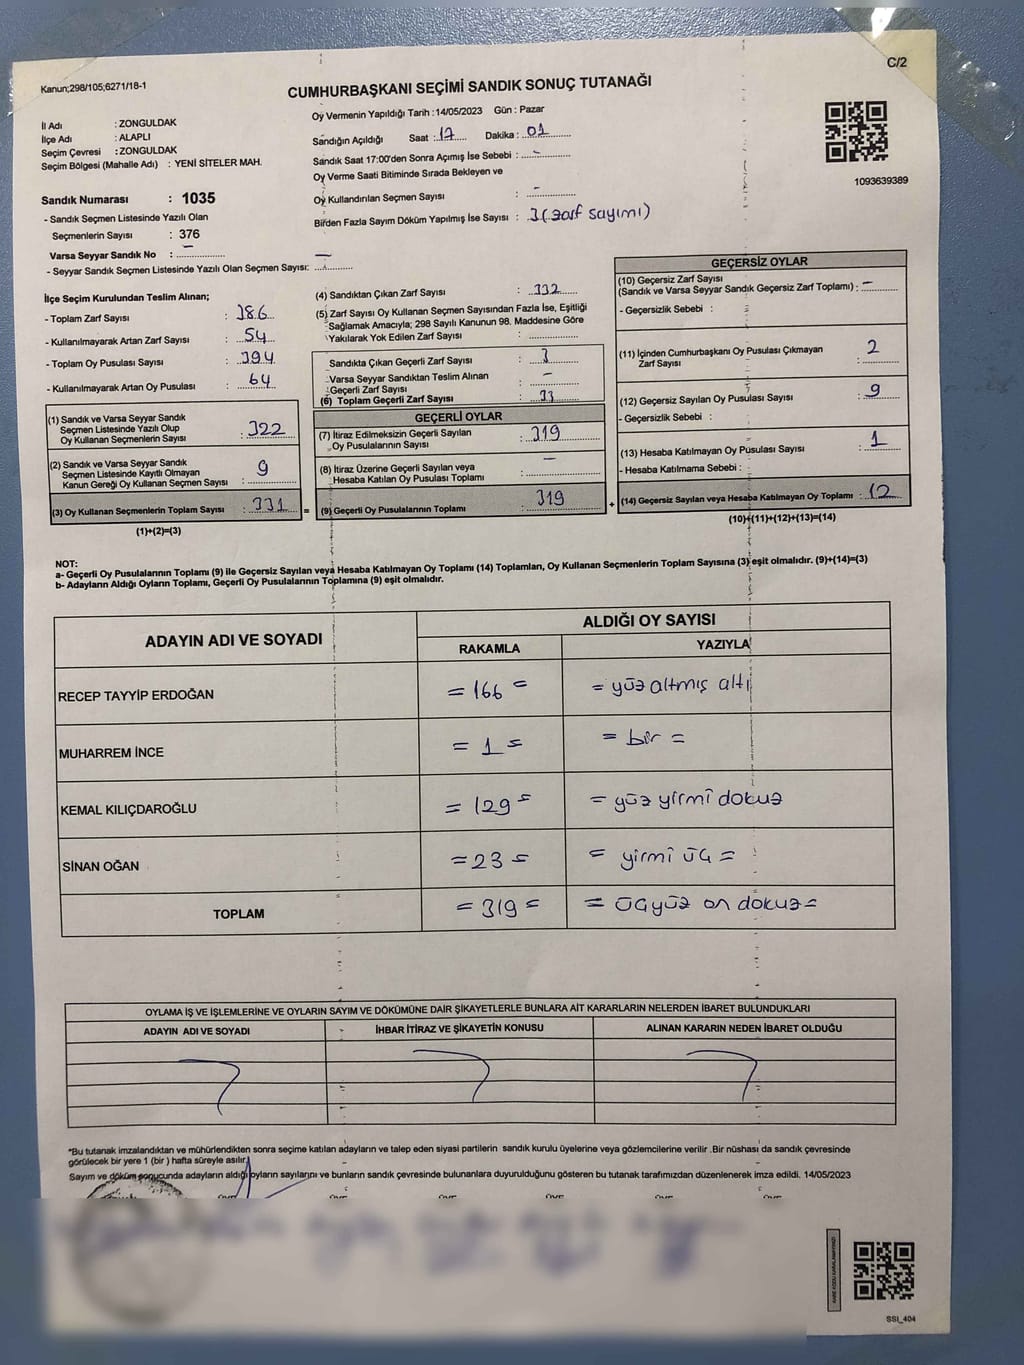 C/2
Kanun;298/105;6271/18-1
CUMHURBAŞKANI SEÇİMİ SANDIK SONUÇ TUTANAĞI
İl Adı : ZONGULDAK
İlçe Adı : ALAPLI
Seçim Çevresi : ZONGULDAK
Seçim Bölgesi (Mahalle Adı) : YENİ SİTELER MAH.
Sandık Numarası : 1035
- Sandık Seçmen Listesinde Yazılı Olan
Seçmenlerin Sayısı : 376
Varsa Seyyar Sandık No : –
- Seyyar Sandık Seçmen Listesinde Yazılı Olan Seçmen Sayısı: –
Oy Vermenin Yapıldığı Tarih :14/05/2023 Gün : Pazar
Sandığın Açıldığı Saat : 17 Dakika : 01
Sandık Saat 17:00'den Sonra Açımış İse Sebebi : –
Oy Verme Saati Bitiminde Sırada Bekleyen ve
Oy Kullandırılan Seçmen Sayısı : –
Birden Fazla Sayım Döküm Yapılmış İse Sayısı : 3 (zarf sayımı)
1093639389
İlçe Seçim Kurulundan Teslim Alınan;
- Toplam Zarf Sayısı : 386
- Kullanılmayarak Artan Zarf Sayısı : 54
- Toplam Oy Pusulası Sayısı : 394
- Kullanılmayarak Artan Oy Pusulası : 64
(1) Sandık ve Varsa Seyyar Sandık
Seçmen Listesinde Yazılı Olup
Oy Kullanan Seçmenlerin Sayısı : 322
(2) Sandık ve Varsa Seyyar Sandık
Seçmen Listesinde Kayıtlı Olmayan
Kanun Gereği Oy Kullanan Seçmen Sayısı : 9
(3) Oy Kullanan Seçmenlerin Toplam Sayısı : 331
(1)+(2)=(3)
(4) Sandıktan Çıkan Zarf Sayısı : 332
(5) Zarf Sayısı Oy Kullanan Seçmen Sayısından Fazla İse, Eşitliği
Sağlamak Amacıyla; 298 Sayılı Kanunun 98. Maddesine Göre
Yakılarak Yok Edilen Zarf Sayısı :
Sandıkta Çıkan Geçerli Zarf Sayısı : 3
Varsa Seyyar Sandıktan Teslim Alınan
Geçerli Zarf Sayısı : –
(6) Toplam Geçerli Zarf Sayısı : 33
GEÇERLİ OYLAR
(7) İtiraz Edilmeksizin Geçerli Sayılan
Oy Pusulalarının Sayısı : 319
(8) İtiraz Üzerine Geçerli Sayılan veya
Hesaba Katılan Oy Pusulası Toplamı : –
(9) Geçerli Oy Pusulalarının Toplamı : 319
GEÇERSİZ OYLAR
(10) Geçersiz Zarf Sayısı
(Sandık ve Varsa Seyyar Sandık Geçersiz Zarf Toplamı) : –
- Geçersizlik Sebebi :
(11) İçinden Cumhurbaşkanı Oy Pusulası Çıkmayan
Zarf Sayısı : 2
(12) Geçersiz Sayılan Oy Pusulası Sayısı : 9
- Geçersizlik Sebebi :
(13) Hesaba Katılmayan Oy Pusulası Sayısı : 1
- Hesaba Katılmama Sebebi :
(14) Geçersiz Sayılan veya Hesaba Katılmayan Oy Toplamı : 12
(10)+(11)+(12)+(13)=(14)
NOT:
a- Geçerli Oy Pusulalarının Toplamı (9) ile Geçersiz Sayılan veya Hesaba Katılmayan Oy Toplamı (14) Toplamları, Oy Kullanan Seçmenlerin Toplam Sayısına (3) eşit olmalıdır. (9)+(14)=(3)
b- Adayların Aldığı Oyların Toplamı, Geçerli Oy Pusulalarının Toplamına (9) eşit olmalıdır.
ADAYIN ADI VE SOYADI
ALDIĞI OY SAYISI
RAKAMLA YAZIYLA
RECEP TAYYİP ERDOĞAN = 166 = = yüz altmış altı
MUHARREM İNCE = 1 = = bir =
KEMAL KILIÇDAROĞLU = 129 = = yüz yirmi dokuz
SİNAN OĞAN = 23 = = yirmi üç =
TOPLAM = 319 = = üçyüz on dokuz =
OYLAMA İŞ VE İŞLEMLERİNE VE OYLARIN SAYIM VE DÖKÜMÜNE DAİR ŞİKAYETLERLE BUNLARA AİT KARARLARIN NELERDEN İBARET BULUNDUKLARI
ADAYIN ADI VE SOYADI İHBAR İTİRAZ VE ŞİKAYETİN KONUSU ALINAN KARARIN NEDEN İBARET OLDUĞU
*Bu tutanak imzalandıktan ve mühürlendikten sonra seçime katılan adayların ve talep eden siyasi partilerin sandık kurulu üyelerine veya gözlemcilerine verilir .Bir nüshası da sandık çevresinde
görülecek bir yere 1 (bir ) hafta süreyle asılır.
Sayım ve döküm sonucunda adayların aldığı oyların sayılarını ve bunların sandık çevresinde bulunanlara duyurulduğunu gösteren bu tutanak tarafımızdan düzenlenerek imza edildi. 14/05/2023
SSI_404